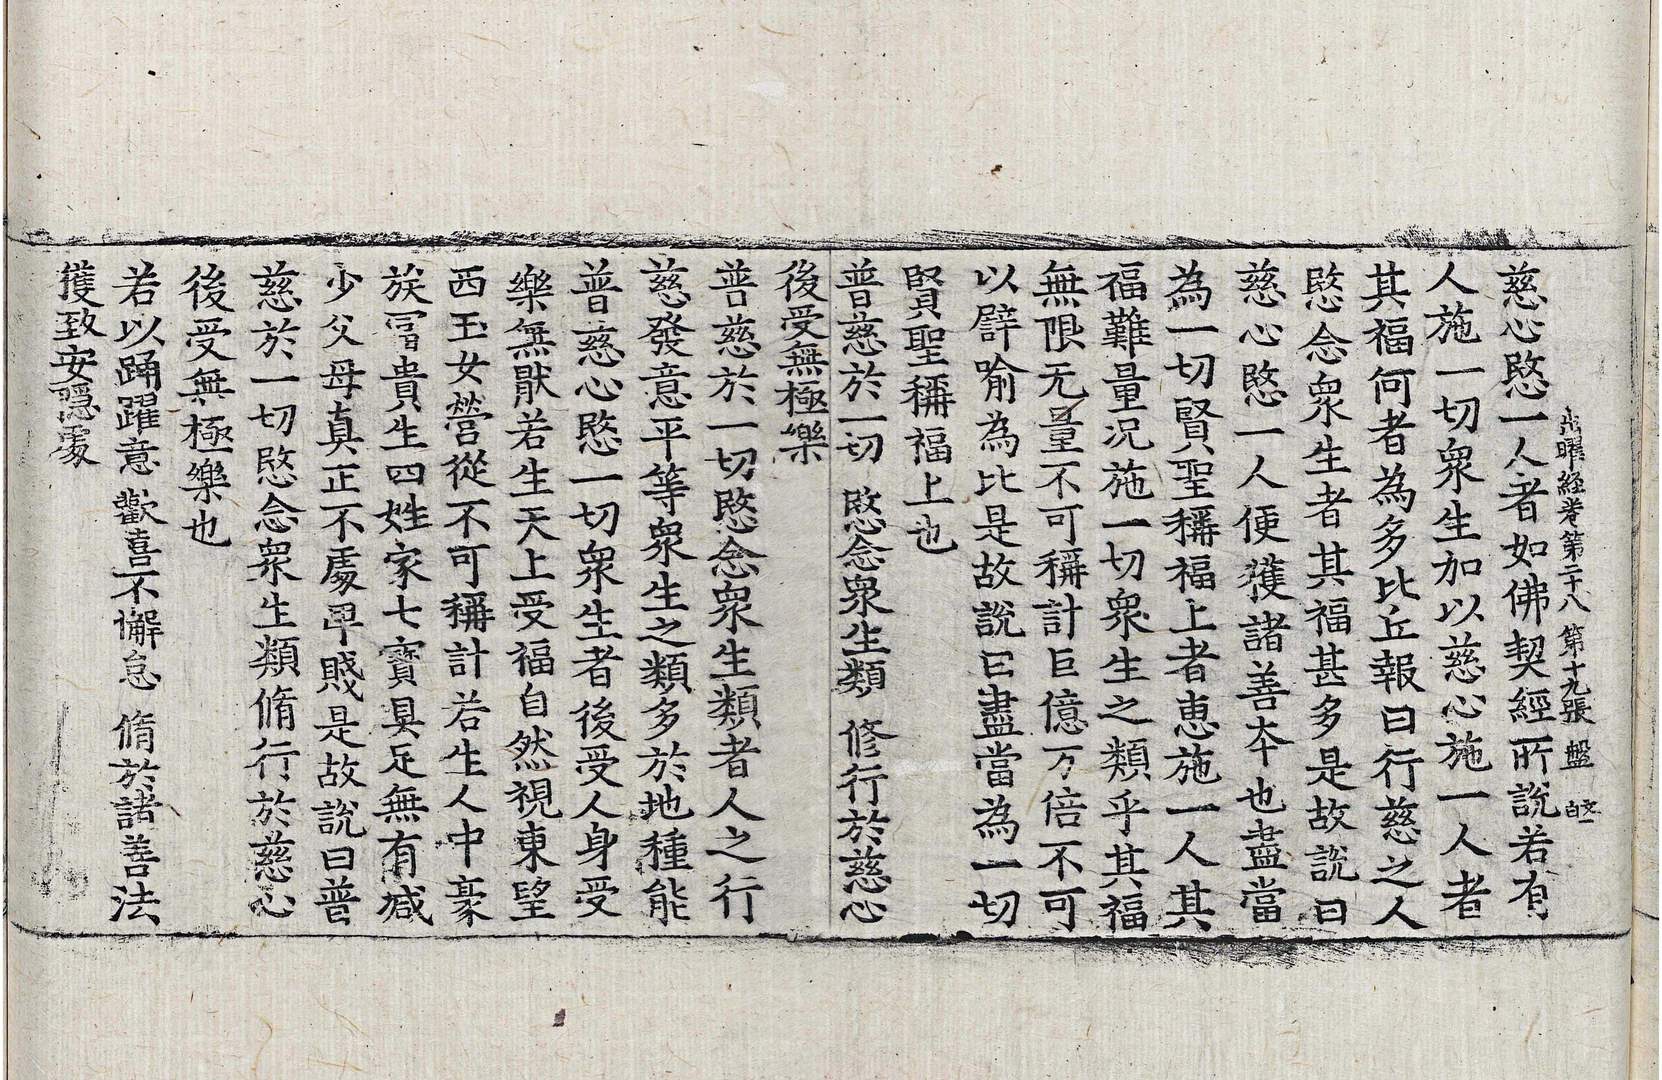 出曜経卷第二十八 第十九張 盤
慈心愍一人者如佛契經所說若有
人施一切衆生加以慈心施一人者
其福何者為多比丘報曰行慈之人
愍念衆生者其福甚多是故說曰
慈心愍一人便獲諸善夲也盡當
為一切賢聖稱福上者惠施一人其
福難量況施一切衆生之類乎其福
無限无量不可稱計巨億万倍不可
以譬喻為比是故說曰盡當為一切
賢聖稱福上也
普慈於一切 愍念衆生類 修行於慈心
後受無極樂
普慈於一切愍念衆生類者人之行
慈發意平等衆生之類多於地種能
普慈心愍一切衆生者後受人身受
樂無猒若生天上受福自然視東望
西玉女營從不可稱計若生人中豪
族冨貴生四姓家七寶具足無有減
少父母真正不處卑賤是故說曰普
慈於一切愍念衆生類脩行於慈心
後受無極樂也
若以踊躍意 歡喜不懈怠 脩於諸善法
獲致安隱處